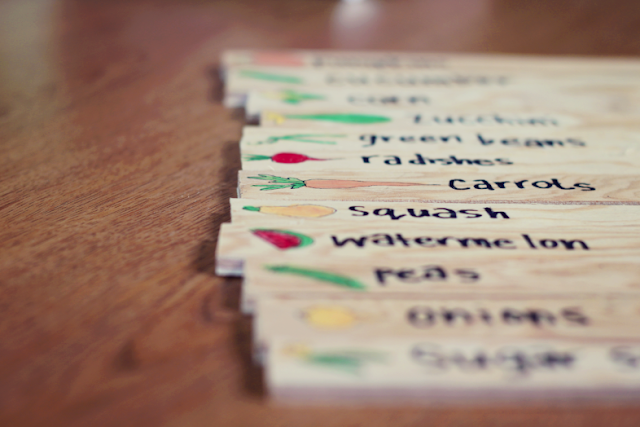 cucumber
corn
zucchini
green beans
radishes
carrots
squash
watermelon
peas
onions
Sugar S